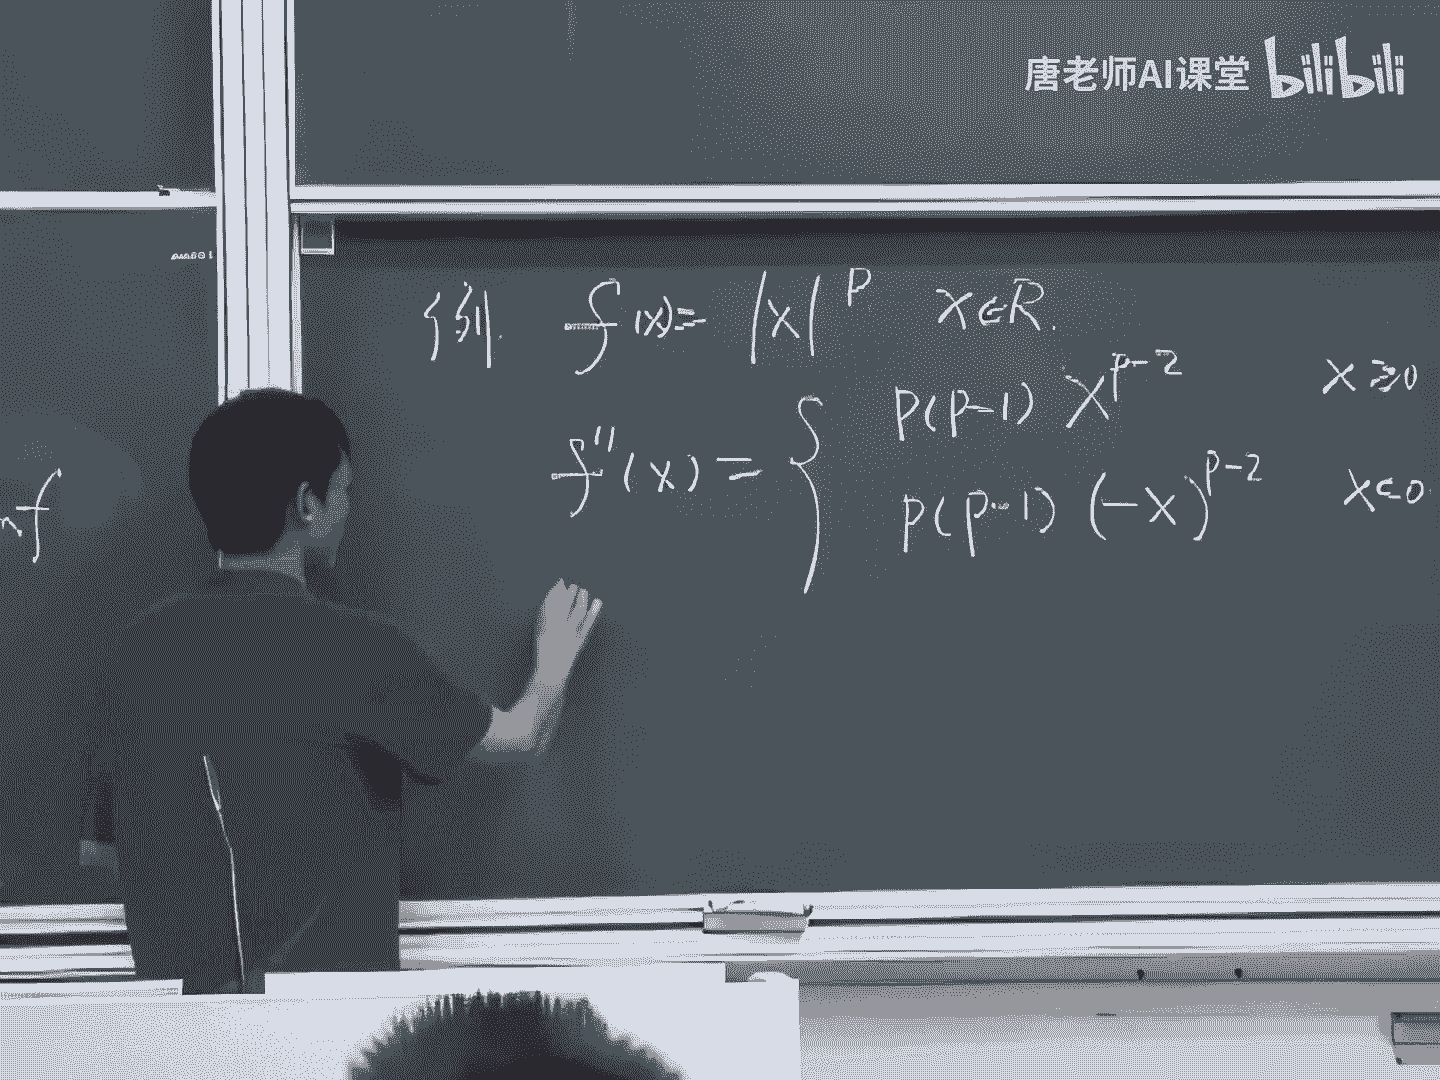 唐老师AI课堂 bilibili
例. f(x)= |x|^p x∈R.
f''(x) = { p(p-1) x^{p-2} x≥0
p(p-1) (-x)^{p-2} x<0